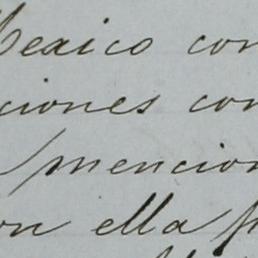 Mexico con
ciones con
mencion
on ella